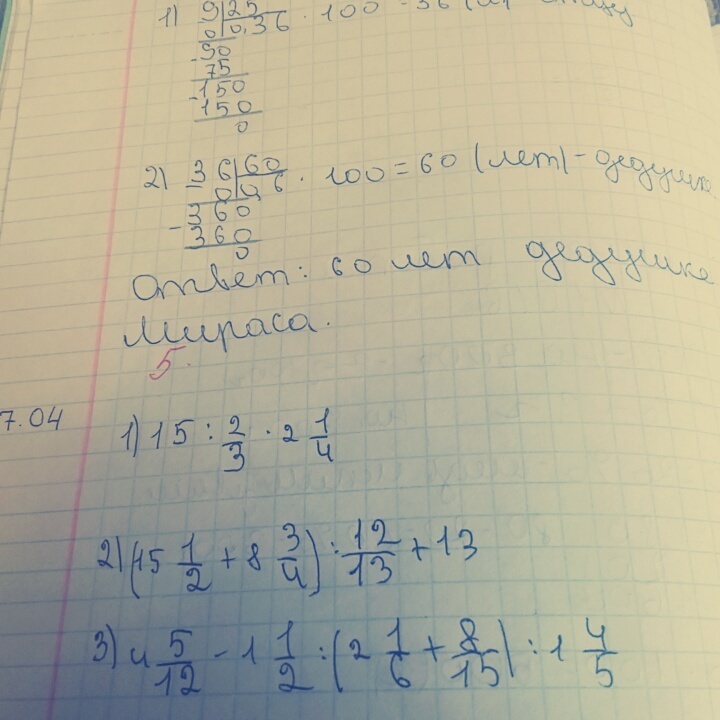 1) 9 | 25
0 | 0,36 · 100 = 36 (л)
-90
75
-150
150
0
2) 36 | 60
0 | 0,6 · 100 = 60 (лет) - дедушке
-360
360
0
Ответ: 60 лет дедушке
Мираса.
5.
7.04
1) 15 : 2/3 · 2 1/4
2) (15 1/2 + 8 3/4) : 12/13 + 13
3) 4 5/12 - 1 1/2 : (2 1/6 + 8/15) : 1 4/5